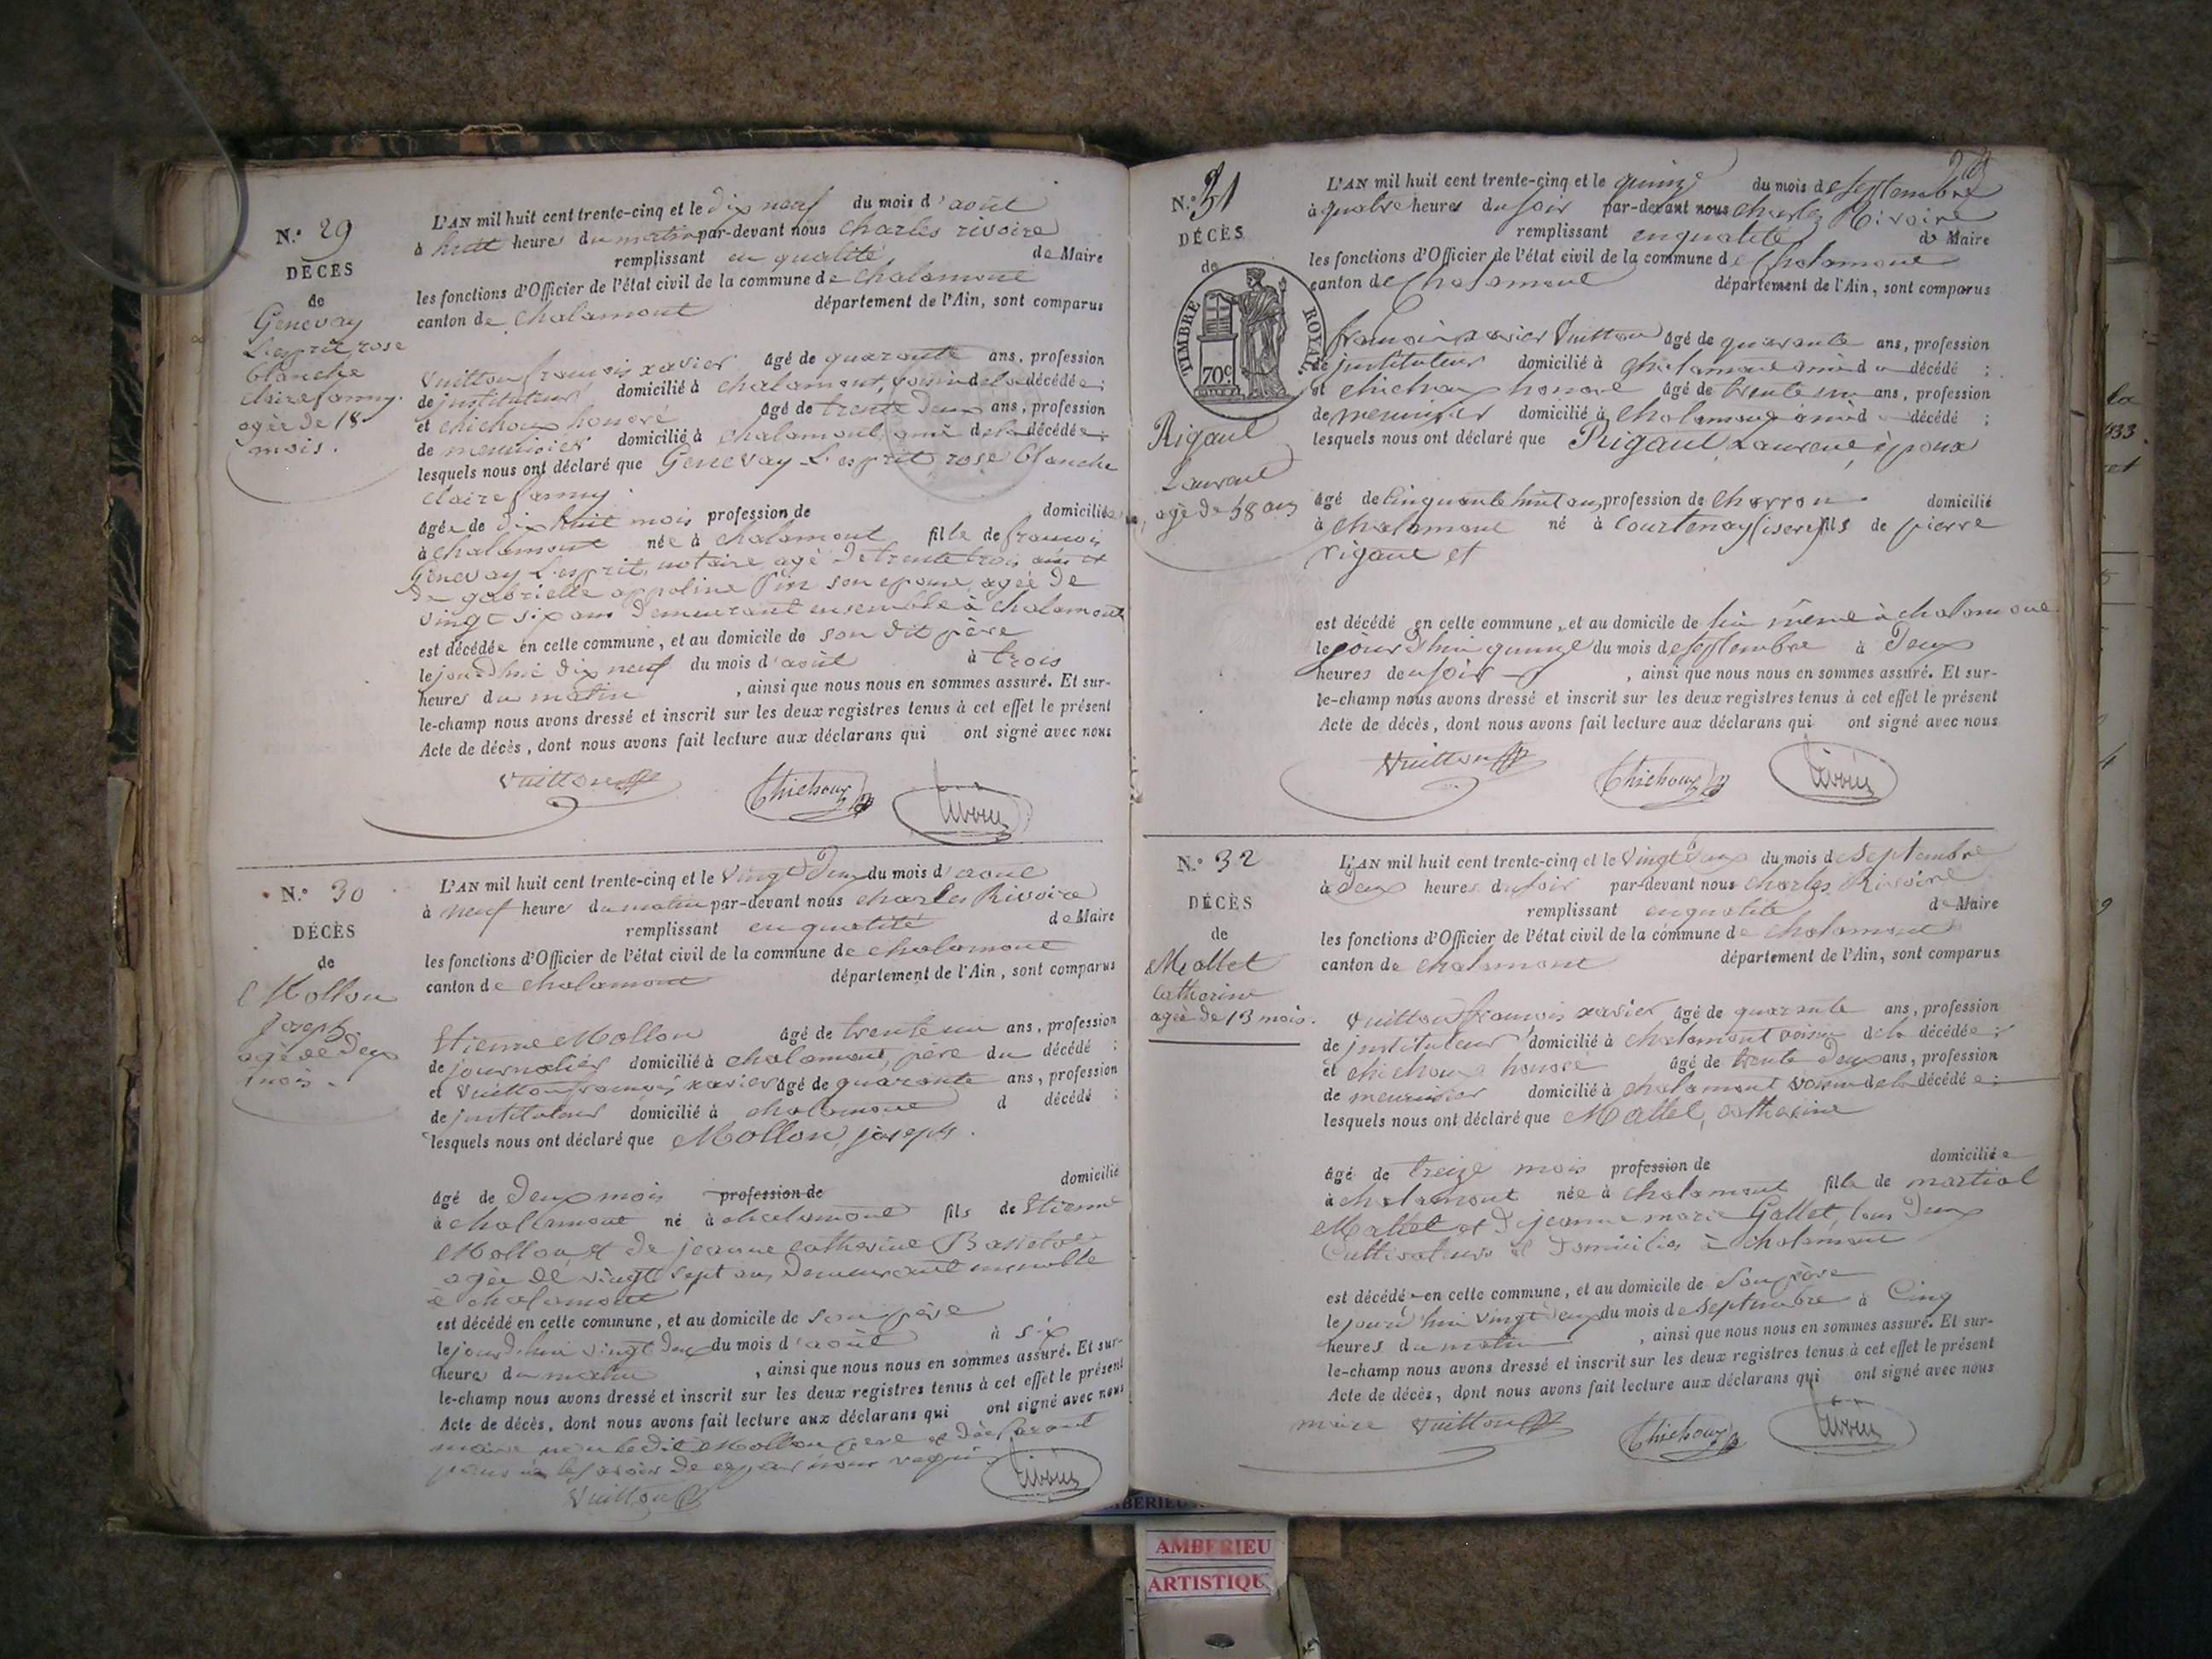 N.° 29
DÉCÈS
de
Genevay
L'esprit, rose
blanche
claire fanny.
agée de 18
mois.
L'AN mil huit cent trente-cinq et le dix neuf du mois d'août
à huit heures du matin par-devant nous Charles rivoire
remplissant en qualité de Maire
les fonctions d'Officier de l'état civil de la commune de chalamont
canton de chalamont département de l'Ain, sont comparus
Vuitton françois xavier âgé de quarante ans, profession
de instituteur domicilié à chalamont, voisin de la décédée;
et chichoux honoré âgé de trente deux ans, profession
de menuisier domicilié à chalamont, ami de la décédée;
lesquels nous ont déclaré que Genevay L'esprit rose blanche
claire fanny.
âgée de dix huit mois profession de domiciliée
à chalamont née à chalamont fille de françois
Genevay L'esprit, notaire agé de trente trois ans et
de gabrielle appoline son epouse, agée de
vingt six ans demeurant ensemble à chalamont
est décédée en cette commune, et au domicile de son dit père
le jourdhui dix neuf du mois d'août à trois
heures du matin, ainsi que nous nous en sommes assuré. Et sur-
le-champ nous avons dressé et inscrit sur les deux registres tenus à cet effet le présent
Acte de décès, dont nous avons fait lecture aux déclarans qui ont signé avec nous
Vuitton Chichoux rivoire
N.° 30
DÉCÈS
de
Mollon
Joseph
agé de deux
mois.
L'AN mil huit cent trente-cinq et le vingt deux du mois d'août
à neuf heures du matin par-devant nous charles Rivoire
remplissant en qualité de Maire
les fonctions d'Officier de l'état civil de la commune de chalamont
canton de chalamont département de l'Ain, sont comparus
Etienne Mollon âgé de trente un ans, profession
de journalier domicilié à chalamont, père du décédé;
et Vuitton françois xavier âgé de quarante ans, profession
de instituteur domicilié à chalamont d décédé;
lesquels nous ont déclaré que Mollon, joseph.
âgé de deux mois profession de domicilié
à chalamont né à chalamont fils de Etienne
Mollon et de jeanne catherine
agée de vingt sept ans demeurant ensemble
à chalamont
est décédé en cette commune, et au domicile de son père
le jourdhui vingt deux du mois d'août à six
heures du matin, ainsi que nous nous en sommes assuré. Et sur-
le-champ nous avons dressé et inscrit sur les deux registres tenus à cet effet le présent
Acte de décès, dont nous avons fait lecture aux déclarans qui ont signé avec nous
maire non ledit Mollon père et déclarant
pour ne le savoir de ce par nous requis
Vuitton rivoire
N.° 31
DÉCÈS
de
TIMBRE ROYAL
70c
Rigaut
Laurent
agé de 58 ans
L'AN mil huit cent trente-cinq et le quinze du mois de septembre
à quatre heures du soir par-devant nous charles Rivoire
remplissant en qualité de Maire
les fonctions d'Officier de l'état civil de la commune de Chalamont
canton de Chalamont département de l'Ain, sont comparus
françois xavier Vuitton âgé de quarante ans, profession
de instituteur domicilié à chalamont ami du décédé;
et chichoux honoré âgé de trente un ans, profession
de menuisier domicilié à Chalamont ami du décédé;
lesquels nous ont déclaré que Rigaut, Laurent, epoux
âgé de Cinquante huit ans, profession de charron domicilié
à chalamont né à courtenay (isere) fils de pierre
rigaut et
est décédé en cette commune, et au domicile de lui même à chalamont
le jour d'hui quinze du mois de septembre à deux
heures du soir, ainsi que nous nous en sommes assuré. Et sur-
le-champ nous avons dressé et inscrit sur les deux registres tenus à cet effet le présent
Acte de décès, dont nous avons fait lecture aux déclarans qui ont signé avec nous
Vuitton Chichoux rivoire
N.° 32
DÉCÈS
de
Mallet
Catherine
agée de 13 mois.
L'AN mil huit cent trente-cinq et le vingt deux du mois de septembre
à deux heures du soir par-devant nous charles Rivoire
remplissant en qualité de Maire
les fonctions d'Officier de l'état civil de la commune de chalamont
canton de chalamont département de l'Ain, sont comparus
Vuitton françois xavier âgé de quarante ans, profession
de instituteur domicilié à chalamont voisin de la décédée;
et chichoux honoré âgé de trente deux ans, profession
de menuisier domicilié à chalamont voisin de la décédée;
lesquels nous ont déclaré que Mallet, catherine
âgé de treize mois profession de domiciliée
à chalamont née à chalamont fille de martial
Mallet et de jeanne marie Gallet, tous deux
Cultivateurs et domiciliés à chalamont
est décédée en cette commune, et au domicile de son père
le jourd'hui vingt deux du mois de septembre à cinq
heures du matin, ainsi que nous nous en sommes assuré. Et sur-
le-champ nous avons dressé et inscrit sur les deux registres tenus à cet effet le présent
Acte de décès, dont nous avons fait lecture aux déclarans qui ont signé avec nous
maire Vuitton Chichoux rivoire
AMBERIEU
ARTISTIQUE